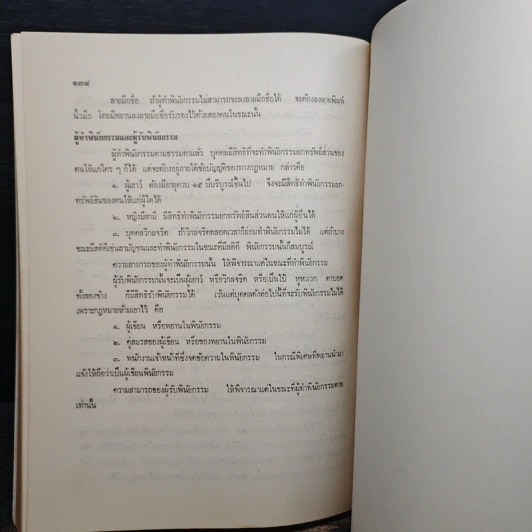 ๑๓๘
ลายมือชื่อ ถ้าผู้ทำพินัยกรรมไม่สามารถจะลงลายมือชื่อได้ จะต้องลงลายพิมพ์
นิ้วมือ โดยมีพยานลงลายมือชื่อรับรองไว้ด้วยสองคนในขณะนั้น
ผู้ทำพินัยกรรมและผู้รับพินัยกรรม
ผู้ทำพินัยกรรมตามธรรมดาแล้ว บุคคลมีสิทธิที่จะทำพินัยกรรมยกทรัพย์ส่วนของ
ตนให้แก่ใคร ๆ ก็ได้ แต่จะต้องอยู่ภายใต้ข้อบัญญัติของทางกฎหมาย กล่าวคือ
๑. ผู้เยาว์ ต้องมีอายุครบ ๑๕ ปีบริบูรณ์ขึ้นไป จึงจะมีสิทธิทำพินัยกรรมยก
ทรัพย์สินของตนให้แก่ผู้ใดได้
๒. หญิงมีสามี มีสิทธิทำพินัยกรรมยกทรัพย์สินส่วนตนให้แก่ผู้อื่นได้
๓. บุคคลวิกลจริต ถ้าวิกลจริตตลอดเวลาก็ย่อมทำพินัยกรรมไม่ได้ แต่ถ้าบาง
ขณะมีสติดีเช่นสามัญชนและทำพินัยกรรมในขณะที่มีสติดี พินัยกรรมนั้นก็สมบูรณ์
ความสามารถของผู้ทำพินัยกรรมนั้น ให้พิจารณาแต่ในขณะที่ทำพินัยกรรม
ผู้รับพินัยกรรมนั้นจะเป็นผู้เยาว์ หรือวิกลจริต หรือเป็นใบ้ หูหนวก ตาบอด
ทั้งสองข้าง ก็มีสิทธิรับพินัยกรรมได้ เว้นแต่บุคคลดังต่อไปนี้ที่จะรับพินัยกรรมไม่ได้
เพราะกฎหมายห้ามเอาไว้ คือ
๑. ผู้เขียน หรือพยานในพินัยกรรม
๒. คู่สมรสของผู้เขียน หรือของพยานในพินัยกรรม
๓. พนักงานเจ้าหน้าที่ซึ่งจดข้อความในพินัยกรรม ในกรณีพิเศษที่พยานนำมา
แจ้งให้ถือว่าเป็นผู้เขียนพินัยกรรม
ความสามารถของผู้รับพินัยกรรม ให้พิจารณาแต่ในขณะที่ผู้ทำพินัยกรรมตาย
เท่านั้น